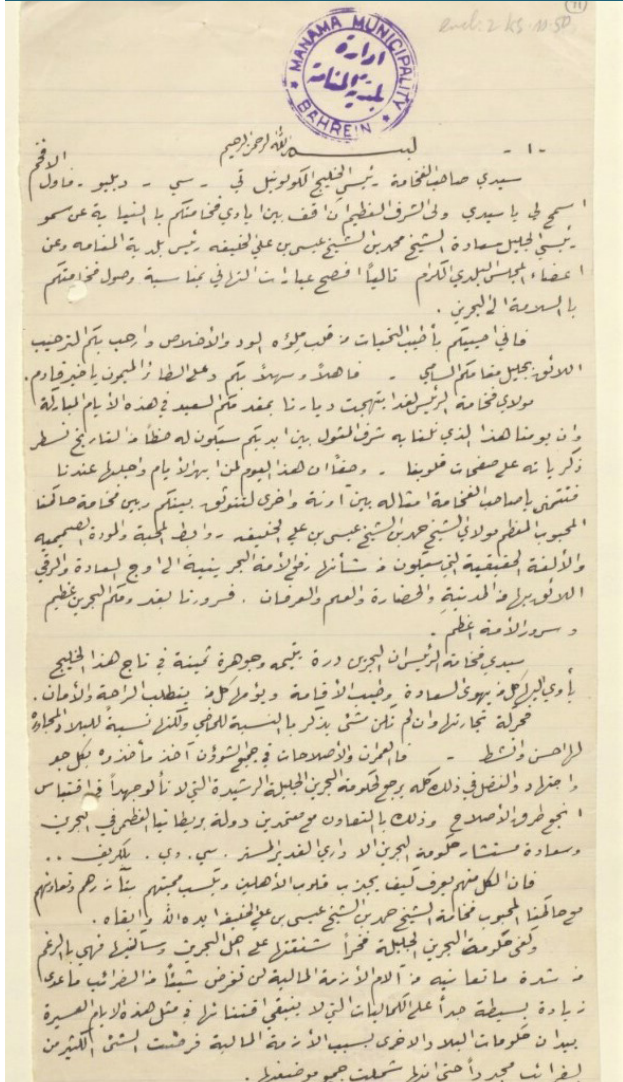 (11)
encl: 2 KS. 11. 50
MANAMA MUNICIPALITY
ادارة
بلدية المنامة
BAHREIN
- ١ -
بسم الله الرحمن الرحيم
سيدي صاحب الفخامة رئيس الخليج الكولونيل تي - سي - دبليو - فاول الافخم
اسمح لي يا سيدي ولي الشرف العظيم ان اقف بين ايادي فخامتكم بالنيابة عن سمو
رئيسي الجليل سعادة الشيخ محمد بن الشيخ عيسى بن علي الخليفه رئيس بلدية المنامه وعن
اعضاء المجلس البلدي الكرام تالياً افصح عبارات التهاني بمناسبة وصول فخامتكم
بالسلامة الى البحرين .
فاني احييكم بأطيب التحيات من قلب ملؤه الود والأخلاص وارحب بكم الترحيب
اللائق بجليل مقامكم السامي - فاهلاً وسهلاً بكم وعلى الطائر الميمون يا خير قادم .
مولاي فخامة الرئيس لقد ابتهجت ديارنا بمقدمكم السعيد في هذه الأيام المباركة
وان يومنا هذا الذي نلنا به شرف المثول بين ايديكم سيكون له حظاً من التاريخ نسطر
ذكرياته على صفحات قلوبنا - وحقاً ان هذا اليوم لمن ابهر الأيام واجلها عندنا
فنتمنى يا صاحب الفخامة امثاله بين آونة واخرى لتتوثق بينكم وبين فخامة حاكمنا
المحبوب المعظم مولاي الشيخ حمد بن الشيخ عيسى بن علي الخليفه روابط المحبة والمودة الصميميه
والألفة الحقيقية التي سيكون من شأنها رفع الأمة البحرينية الى اوج السعادة والرقي
اللائق بها من المدنية والحضارة والعلم والعرفان . فسرورنا بقدومكم البحرين عظيم
وسرور الأمة اعظم .
سيدي فخامة الرئيس ان البحرين درة يتيمه وجوهرة ثمينة في تاج هذا الخليج
يأوي اليها كل من يهوى السعادة وطيب الأقامة ويؤمها كل من يتطلب الراحة والأمان .
فحركة تجارتها وان لم تكن شئى يذكر بالنسبة للماضي ولكنها نسبةً للبلاد المجاوره
لها احسن وانشط - فالعمران والأصلاحات في جميع الشوؤن آخذ مأخذه بكل جد
واجتهاد والفضل في ذلك كله يرجع لحكومة البحرين الجليلة الرشيدة التي لا تألو جهداً في اقتباس
انجع طرق الأصلاح وذلك بالتعاون مع معتمدين دولة بريطانيا العظمى في البحرين
وسعادة مستشار حكومة البحرين الاداري القدير المستر . سي . دي . بلكريف . .
فان الكل منهم يعرف كيف يجذب قلوب الأهلين ويكسب محبتهم بتآزرهم وتعاونهم
مع حاكمنا المحبوب فخامة الشيخ حمد بن الشيخ عيسى بن علي الخليفة ايده الله وابقاه .
وكفى حكومة البحرين الجليلة فخراً شفقتها على اهل البحرين وساكنيها فهي بالرغم
من شدة ما تعانيه من آلام الأزمة المالية لن تفرض شيئاً من الضرائب ماعدى
زيادة بسيطة جداً على الكماليات التي لا ينبغي اقتنائها في مثل هذه الايام العسيرة
بيد ان حكومات البلاد الاخرى بسبب الأزمة المالية فرضت الشئى الكثير من
الضرائب مجدداً حتى انها شملت جميع